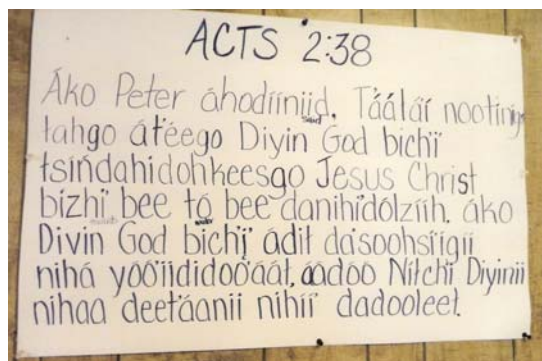 ACTS 2:38
Áko Peter áhodííniid, T'ááłáí nootínígo
łahgo át'éego Diyin God bich'į'
tsíńdahidohkeesgo Jesus Christ
bízhi' bee tó bee danihi'dólzííh. áko
Diyin God bich'į' ádił da'soohsíígíí
nihá yóó'iididoo'ááł, áádóó Níłch'i Diyinii
nihaa deet'áanii nihíí' dadooleeł.